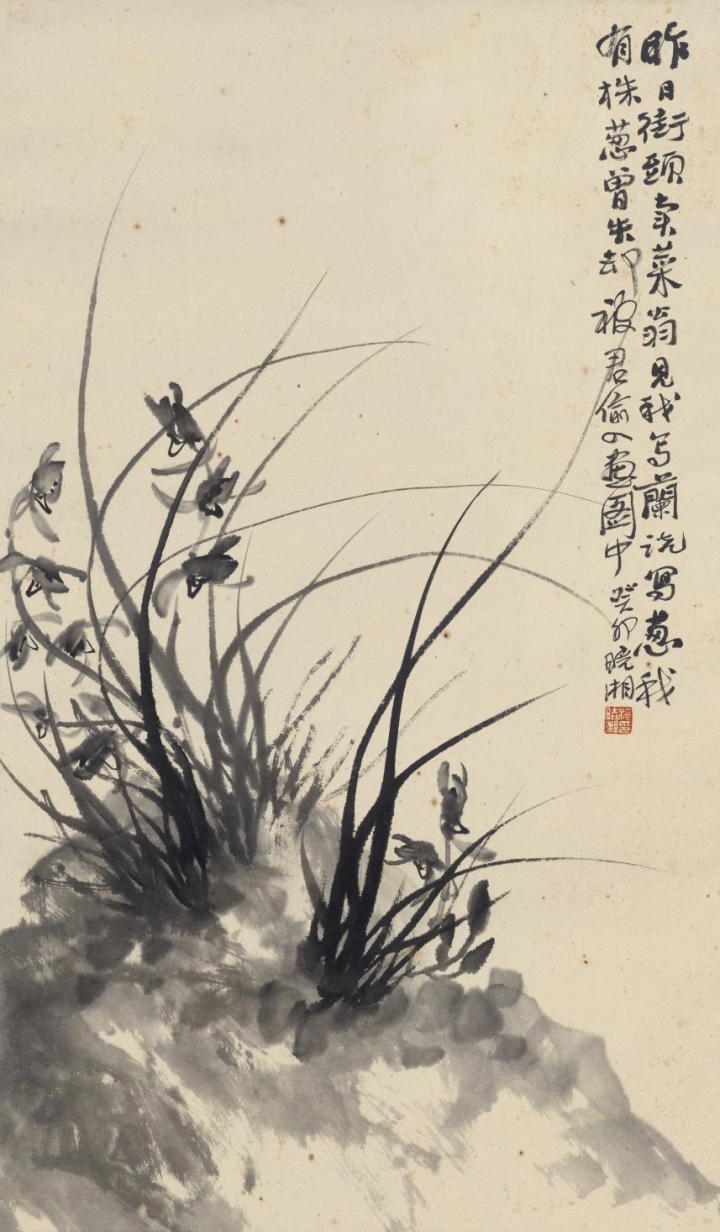 昨日街頭卖菜翁見我写蘭説寫蔥我
有株蔥曾失却被君偷入畫圖中 癸卯曉湘